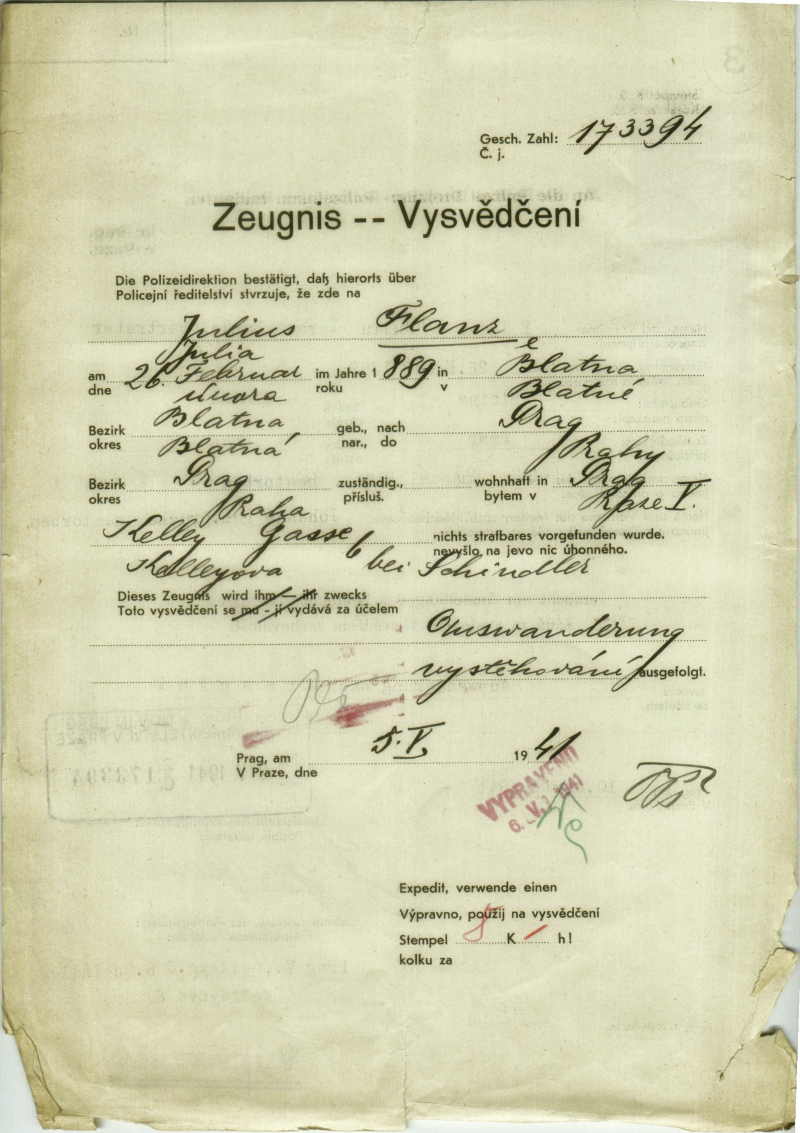 Gesch. Zahl: 173394
Č. j.
Zeugnis -- Vysvědčení
Die Polizeidirektion bestätigt, daß hierorts über
Policejní ředitelství stvrzuje, že zde na
Julius Flanz
Julia
am 26. Februar im Jahre 1 889 in Blatna
dne února roku v Blatné
Bezirk Blatna geb., nach Prag
okres Blatná nar., do Prahy
Bezirk Prag zuständig., wohnhaft in Prag
okres Praha přísluš. bytem v Praze V.
Kelley Gasse 6 nichts strafbares vorgefunden wurde.
nevyšlo na jevo nic úhonného.
Kelleyova bei Schindler
Dieses Zeugnis wird ihm — ihr zwecks
Toto vysvědčení se mu - jí vydává za účelem
Auswanderung
vystěhování ausgefolgt.
Prag, am 5. V. 19 41
V Praze, dne
VYPRAVENO
6. V. 1941
Expedit, verwende einen
Výpravno, použij na vysvědčení
Stempel 8 K h!
kolku za